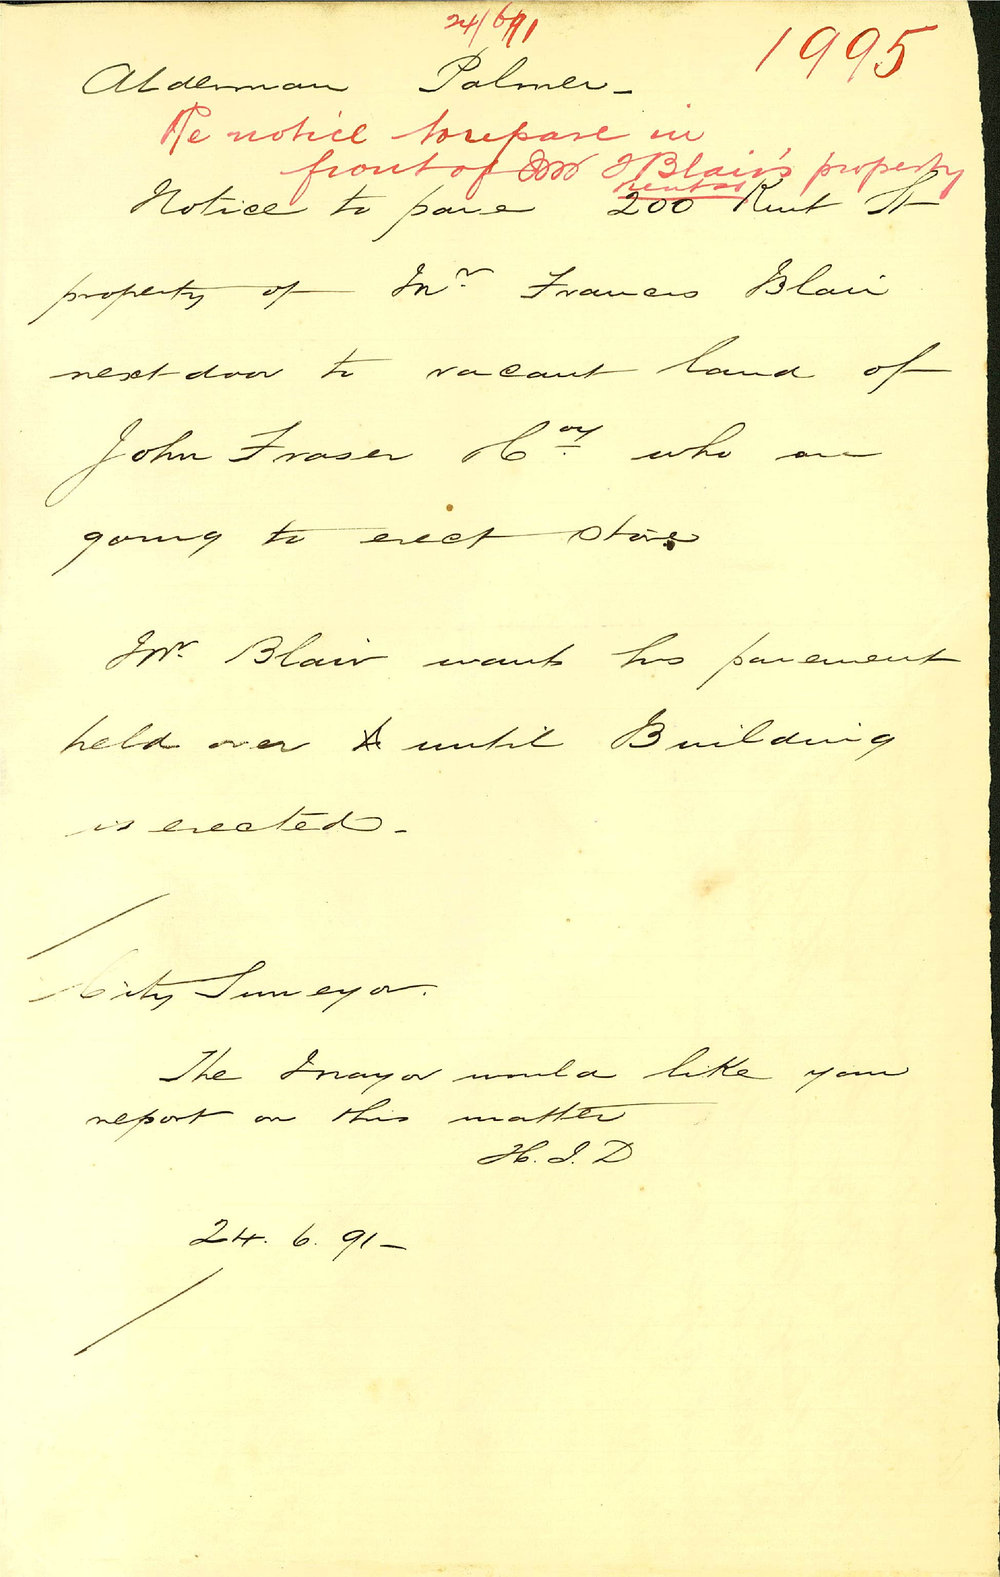 24/6/91
1995
Alderman Palmer_
Re notice to repave in
front of F Blair's property
Kent St
Notice to pave 200 Kent St
property of Mr. Francis Blair
next door to vacant land of
John Fraser & Coy. who are
going to erect store
Mr. Blair wants his pavement
held over until Building
is erected_
City Surveyor.
The Mayor would like your
report on this matter
H. J. D
24. 6. 91_